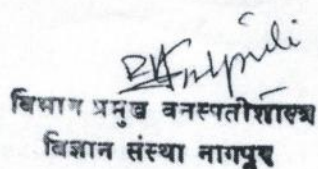 विभाग प्रमुख वनस्पतीशास्त्र
विज्ञान संस्था नागपूर